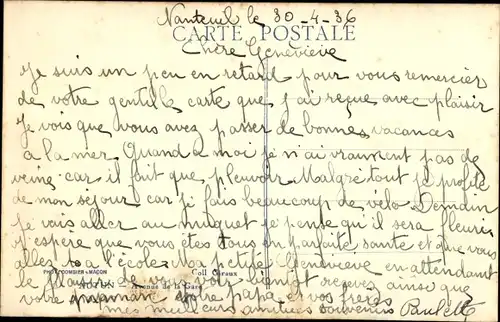 Nanteuil le 30-4-36
CARTE POSTALE
Chère Geneviève
Je suis un peu en retard pour vous remercier
de votre gentille carte que j'ai reçue avec plaisir
Je vois que vous avez passer de bonnes vacances
a la mer. Quand a moi je n'ai vraiment pas de
veine car il fait que pleuvoir Malgré tout je profite
de mon séjour car je fais beaucoup de vélo Demain
je vais aller au muguet je pense qu'il sera fleuri
J'espère que vous êtes tous en parfaite santé et que vous
allez à l'école. Ma petite Geneviève en attendant
PHOT. COMBIER MACON
Coll. Céraux
le plaisir de vous voir bientôt recevez ainsi que
Avenue de la Gare
votre maman votre papa et vos frères
mes meilleurs amitiés souvenirs Paulette